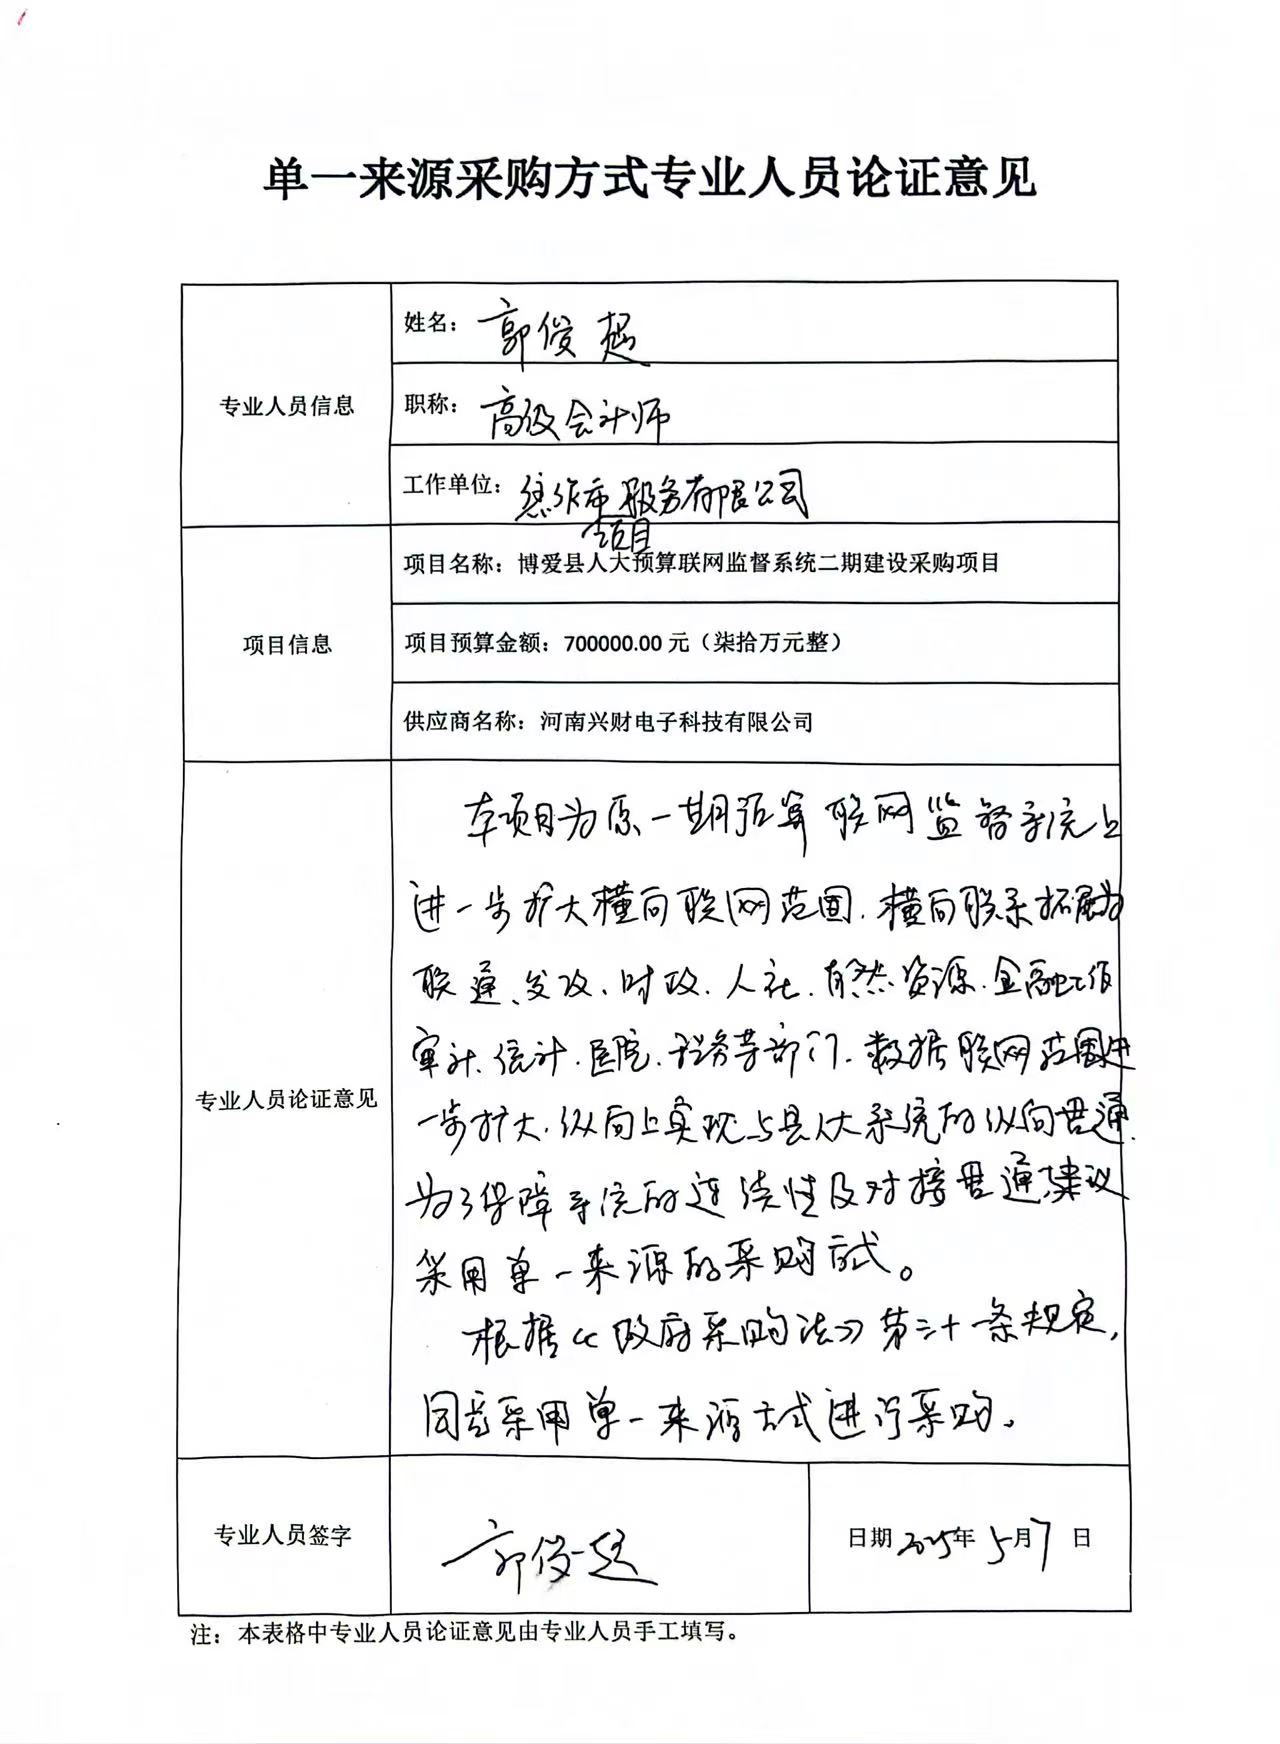 单一来源采购方式专业人员论证意见
专业人员信息
姓名：郭俊超
职称：高级会计师
工作单位：焦作市项目服务有限公司
项目信息
项目名称：博爱县人大预算联网监督系统二期建设采购项目
项目预算金额：700000.00 元（柒拾万元整）
供应商名称：河南兴财电子科技有限公司
专业人员论证意见
本项目为原一期预算联网监督系统上
进一步扩大横向联网范围，横向联系拓展为
联通、发改、财政、人社、自然资源、金融工作
审计、统计、医院、税务等部门，数据联网范围进
一步扩大，纵向上实现与县人大系统的纵向贯通，
为了保障系统的连续性及对接贯通，建议
采用单一来源的采购方式。
根据《政府采购法》第三十一条规定，
同意采用单一来源方式进行采购。
专业人员签字
郭俊超
日期 2025年 5月7日
注：本表格中专业人员论证意见由专业人员手工填写。